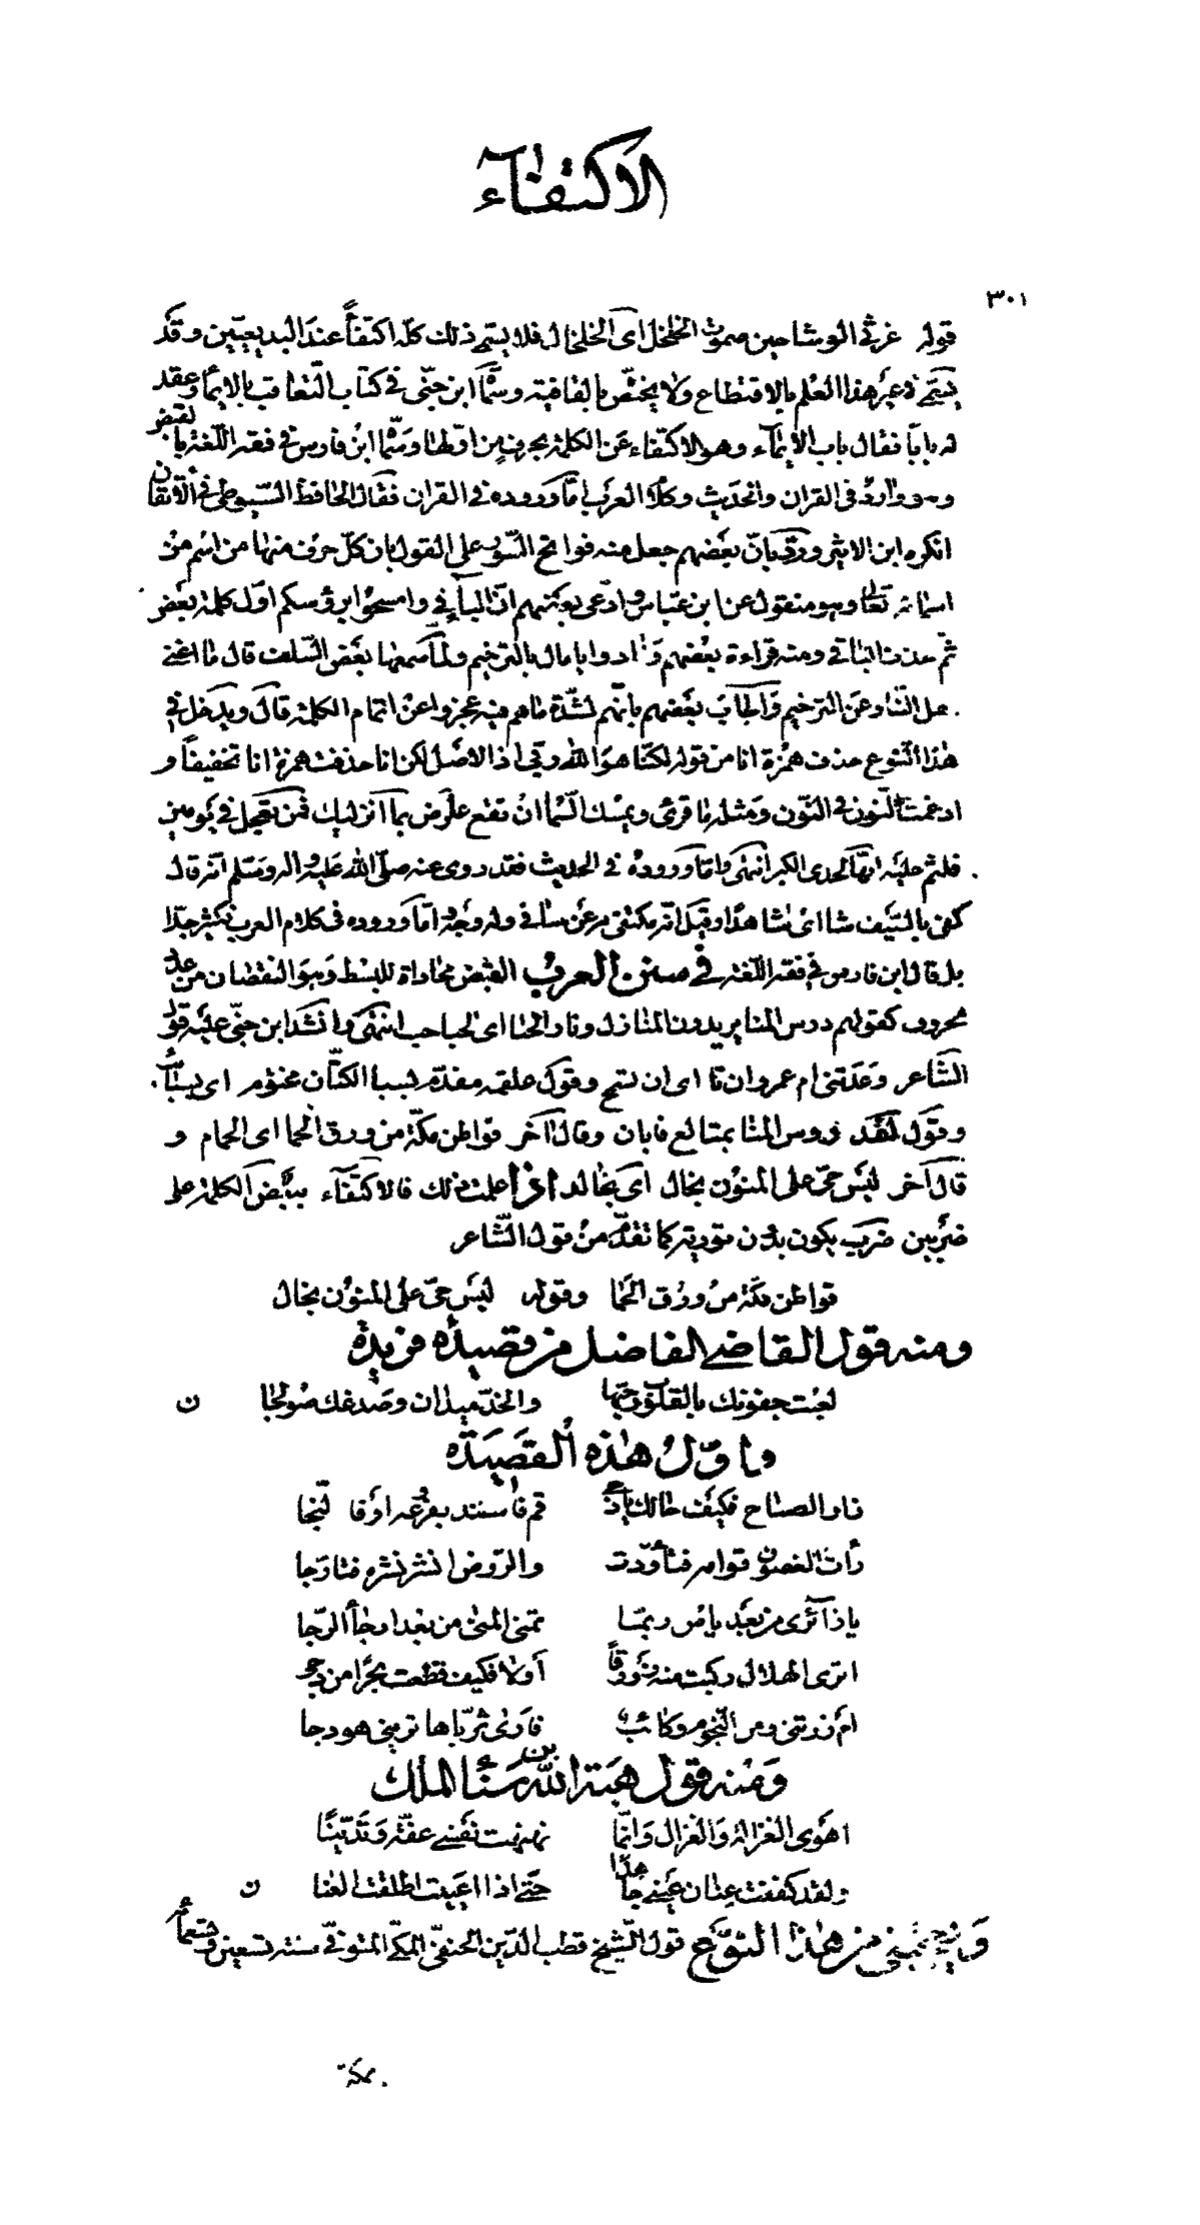 الاكتفاء
٣٠١
قوله غرثى الوشاحين صموت الخلخل اى الخلخال فلا يسمّى ذلك كلّه اكتفاءً عند البديعيّين وقد
يسمّى فى غير هذا العلم بالاقتطاع ولا يختصّ بالقافية وسمّاه ابن جنّى فى كتاب التّعاقب بالايماء وعقد
له باباً فقال باب الايماء وهو الاكتفاء عن الكلمة بحرف من اوّلها وسمّاه ابن فارس فى فقه اللّغة بالقبض
وهو وارد فى القران والحديث وكلام العرب امّا وروده فى القران فقال الحافظ السّيوطى فى الاتقان
انكره ابن الاثير وردّ بانّ بعضهم جعل منه فواتح السّور على القول بان كلّ حرف منها من اسم من
اسمائه تعالى وهو منقول عن ابن عبّاس وادّعى بعضهم انّ الباء فى وامسحوا برؤسكم اوّل كلمة بعض
ثمّ حذف الباقى ومنه قراءة بعضهم ونادوا يا مال بالترخيم ولمّا سمعها بعض السّلف قال ما اغنى
اهل النّار عن الترخيم واجاب بعضهم بانّهم لشدّة ما هم فيه عجزوا عن اتمام الكلمة قال ويدخل فى
هذا النّوع حذف همزة انا من قوله لكنّا هو اللّه ربّى اذ الاصل لكن انا حذفت همزة انا تخفيفاً و
ادغمت النّون فى النّون ومثله ما قرئ ويمسك السّما ان تقع علّرض بما انزليك فمن تعجل فى يومين
فلثم عليه انّها لحدى الكبر انتهى وامّا وروده فى الحديث فقد روى عنه صلّى اللّه عليه واله وسلّم انّه قال
كفى بالسّيف شا اى شاهدا وقيل انّه مكتفى به عن شافى وله وجه وامّا وروده فى كلام العرب فكثير جدّا
بل قال ابن فارس فى فقه اللّغة فى سنن العرب القبض محاذاة للبسط وهو النقصان من عدد
الحروف كقولهم درس المنا يريدون المنازل ونار الحبا اى الحباحب انتهى وانشد ابن جنّى عليه قول
الشّاعر وعدتنى ام عمرو ان تا اى ان تمسح وقول علقمه مفدّم بسبا الكتّان مختوم اى بسبائب
وقول لبيد درس المنا بمتالع فابان وقال آخر قواطن مكّة من ورق الحما اى الحمام و
قال آخر ليس حىّ على المنون بخال اى بخالد اذا علمت ذلك فالاكتفاء ببعض الكلمة على
ضربين ضرب يكون بدون تورية كما تقدّم من قول الشّاعر
قواطن مكّة من ورق الحما وقوله ليس حىّ على المنون بخال
ومنه قول القاضى الفاضل من قصيدة فريدة
لعبت جفونك بالقلوب وحبّها والخدّ ميدان وصدغك صولجا ن
واوّل هذه القصيدة
زار الصباح فكيف حالك يا دجى قم فاستند بفرعه او فالنّجا
رأت الغصون قوامه فتأوّدت والرّوض انشر نشره فتارّجا
يا زآئرى من بعد يأس ربمّا تمنى المنى من بعد ارجاء الرّجا
اترى الهلال ركبت منه زورقاً اولا فكيف قطعت بحرا من دجى
ام زرتنى ومن النّجوم ركائب فارى ثريّاها ترينى هودجا
ومنه قول هبة اللّه بن سنا الملك
اهوى الغزالة والغزال وانّما نهنهت نفسى عفّة وتديّنا
ولقد كففت عنان عينى جاهدا حتّى اذا اعييت اطلقت العنا ن
ويعجبنى من هذا النّوع قول الشّيخ قطب الدّين الحنفى المكّى المتوفّى سنة تسعين وتسعمائه
بمكة